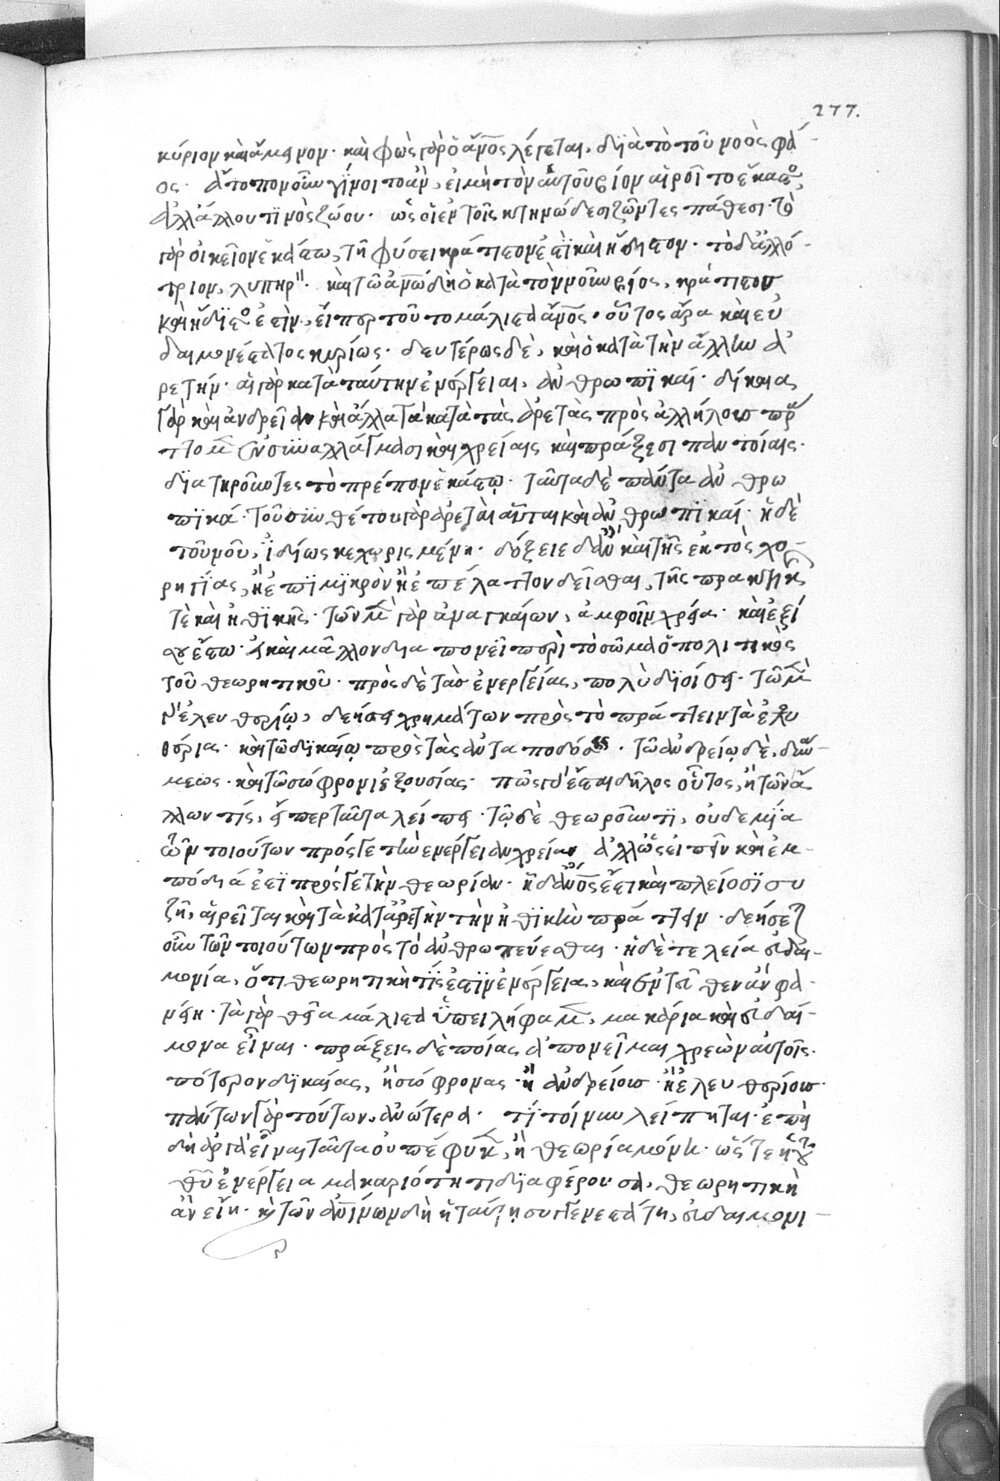 277.
κύριον καὶ ἄμεινον· καὶ φὼς γὰρ ὁ ἄνος λέγεται, διὰ τὸ τοῦ νοὸς φά-
ος· ἄτοπον οὖν γίνοιτο ἂν, εἰ μὴ τὸν αὑτοῦ βίον αἱροῖτο ἕκαστος,
ἀλλ' ἄλλου τινὸς ζώου· ὡς οἱ ἐν τοῖς κτηνώδεσι ζῶντες πάθεσι· τὸ
γὰρ οἰκεῖον ἑκάστω, τῆ φύσει κράτιστον ἐστὶ καὶ ἥδιστον· τὸ δ' ἀλλό-
τριον, λυπηρ· καὶ τῶ ἀνω δὴ ὁ κατὰ τὸν νοῦν βίος, κράτιστος
καὶ ἥδιστος ἐστὶν, εἴπερ τοῦτο μάλιστα ἄνος· οὗτος ἄρα καὶ εὐ
δαιμονέστατος κυρίως· δευτέρως δὲ, καὶ ὁ κατὰ τὴν ἄλλην ἀ
ρετήν· αἱ γὰρ κατὰ ταύτην ἐνέργειαι, ἀνθρωπικαί· δίκαια
γὰρ καὶ ἀνδρεῖα καὶ ἄλλα τὰ κατὰ τὰς ἀρετὰς πρὸς ἀλλήλους πρά
ττομεν ἐν συναλλάγμασι καὶ χρείαις καὶ πράξεσι παντοίαις·
διατηροῦντες τὸ πρέπον ἑκάστω· ταῦτα δὲ πάντα ἀνθρω
πικά· τοῦ συνθέτου γὰρ ἀρεταὶ αὗται καὶ ἀνθρωπικαί· ἡ δὲ
τοῦ νοῦ, ἰδίως κεχωρισμένη· δόξειε δ' ἂν καὶ τῆς ἐκτὸς χο-
ρηγίας, ἢ ἐπὶ μικρὸν ἢ ἐπ' ἔλαττον δεῖσθαι, τῆς πρακτικῆς
τὲ καὶ ἠθικῆς· τῶν μὲν γὰρ ἀναγκαίων, ἀμφοῖν χρεία· καὶ ἐξί
σου ἔστω· εἰ καὶ μᾶλλον διαπονεῖ περὶ τὸ σῶμα ὁ πολιτικὸς
τοῦ θεωρητικοῦ· πρὸς δὲ τὰς ἐνεργείας, πολὺ διοίσει· τῶ μὲν
γὰρ ἐλευθερίω, δεήσει χρημάτων πρὸς τὸ πράττειν τὰ ἐλευ
θέρια· καὶ τῶ δικαίω πρὸς τὰς ἀνταποδόσεις· τῶ ἀνδρείω δὲ, δυνά-
μεως· καὶ τῶ σώφρονι ἐξουσίας· πῶς γὰρ ἔσται δῆλος οὗτος, ἢ τῶν ἄ
λλων τίς, εἴπερ ταῦτα λείπει· τῶ δὲ θεωροῦντι, οὐδεμία
τῶν τοιούτων πρός γε τὴν ἐνέργειαν χρεία, ἀλλ' ὡς εἰπεῖν καὶ ἐμ-
πόδιά ἐστὶ πρός γε τὴν θεωρίαν· ἧ δ' ἄνος ἐστὶ καὶ πλείοσι συ
ζῆ, αἱρεῖται καὶ τὰ κατ' ἀρετὴν τὴν ἠθικὴν πράττειν· δεήσεται
οὖν τῶν τοιούτων πρὸς τὸ ἀνθρωπεύεσθαι· ἡ δὲ τελεία εὐδαι-
μονία, ὅτι θεωρητική τίς ἐστὶν ἐνέργεια, καὶ ἐντεῦθεν ἂν φα-
νείη· τὰ γὰρ θεῖα μάλιστα ὑπειλήφαμεν, μακάρια καὶ εὐδαί-
μονα εἶναι· πράξεις δὲ ποίας ἀπονεῖμαι χρεὼν αὐτοῖς·
πότερον δικαίας, ἢ σώφρονας· ἢ ἀνδρείους· ἢ ἐλευθερίους·
πάντων γὰρ τούτων, ἀνώτερα· τί τοίνυν λείπηται· ἐπεὶ
δὴ ἀργὰ εἶναι ταῦτα οὐ πέφυκεν, ἢ θεωρία μόνη· ὥστε ἡ τοῦ
θεοῦ ἐνέργεια μακαριότητι διαφέρουσα, θεωρητικὴ
ἂν εἴη· καὶ τῶν ἀνίνων δὴ ἡ ταύτη συγγενεστάτη, εὐδαιμονι-